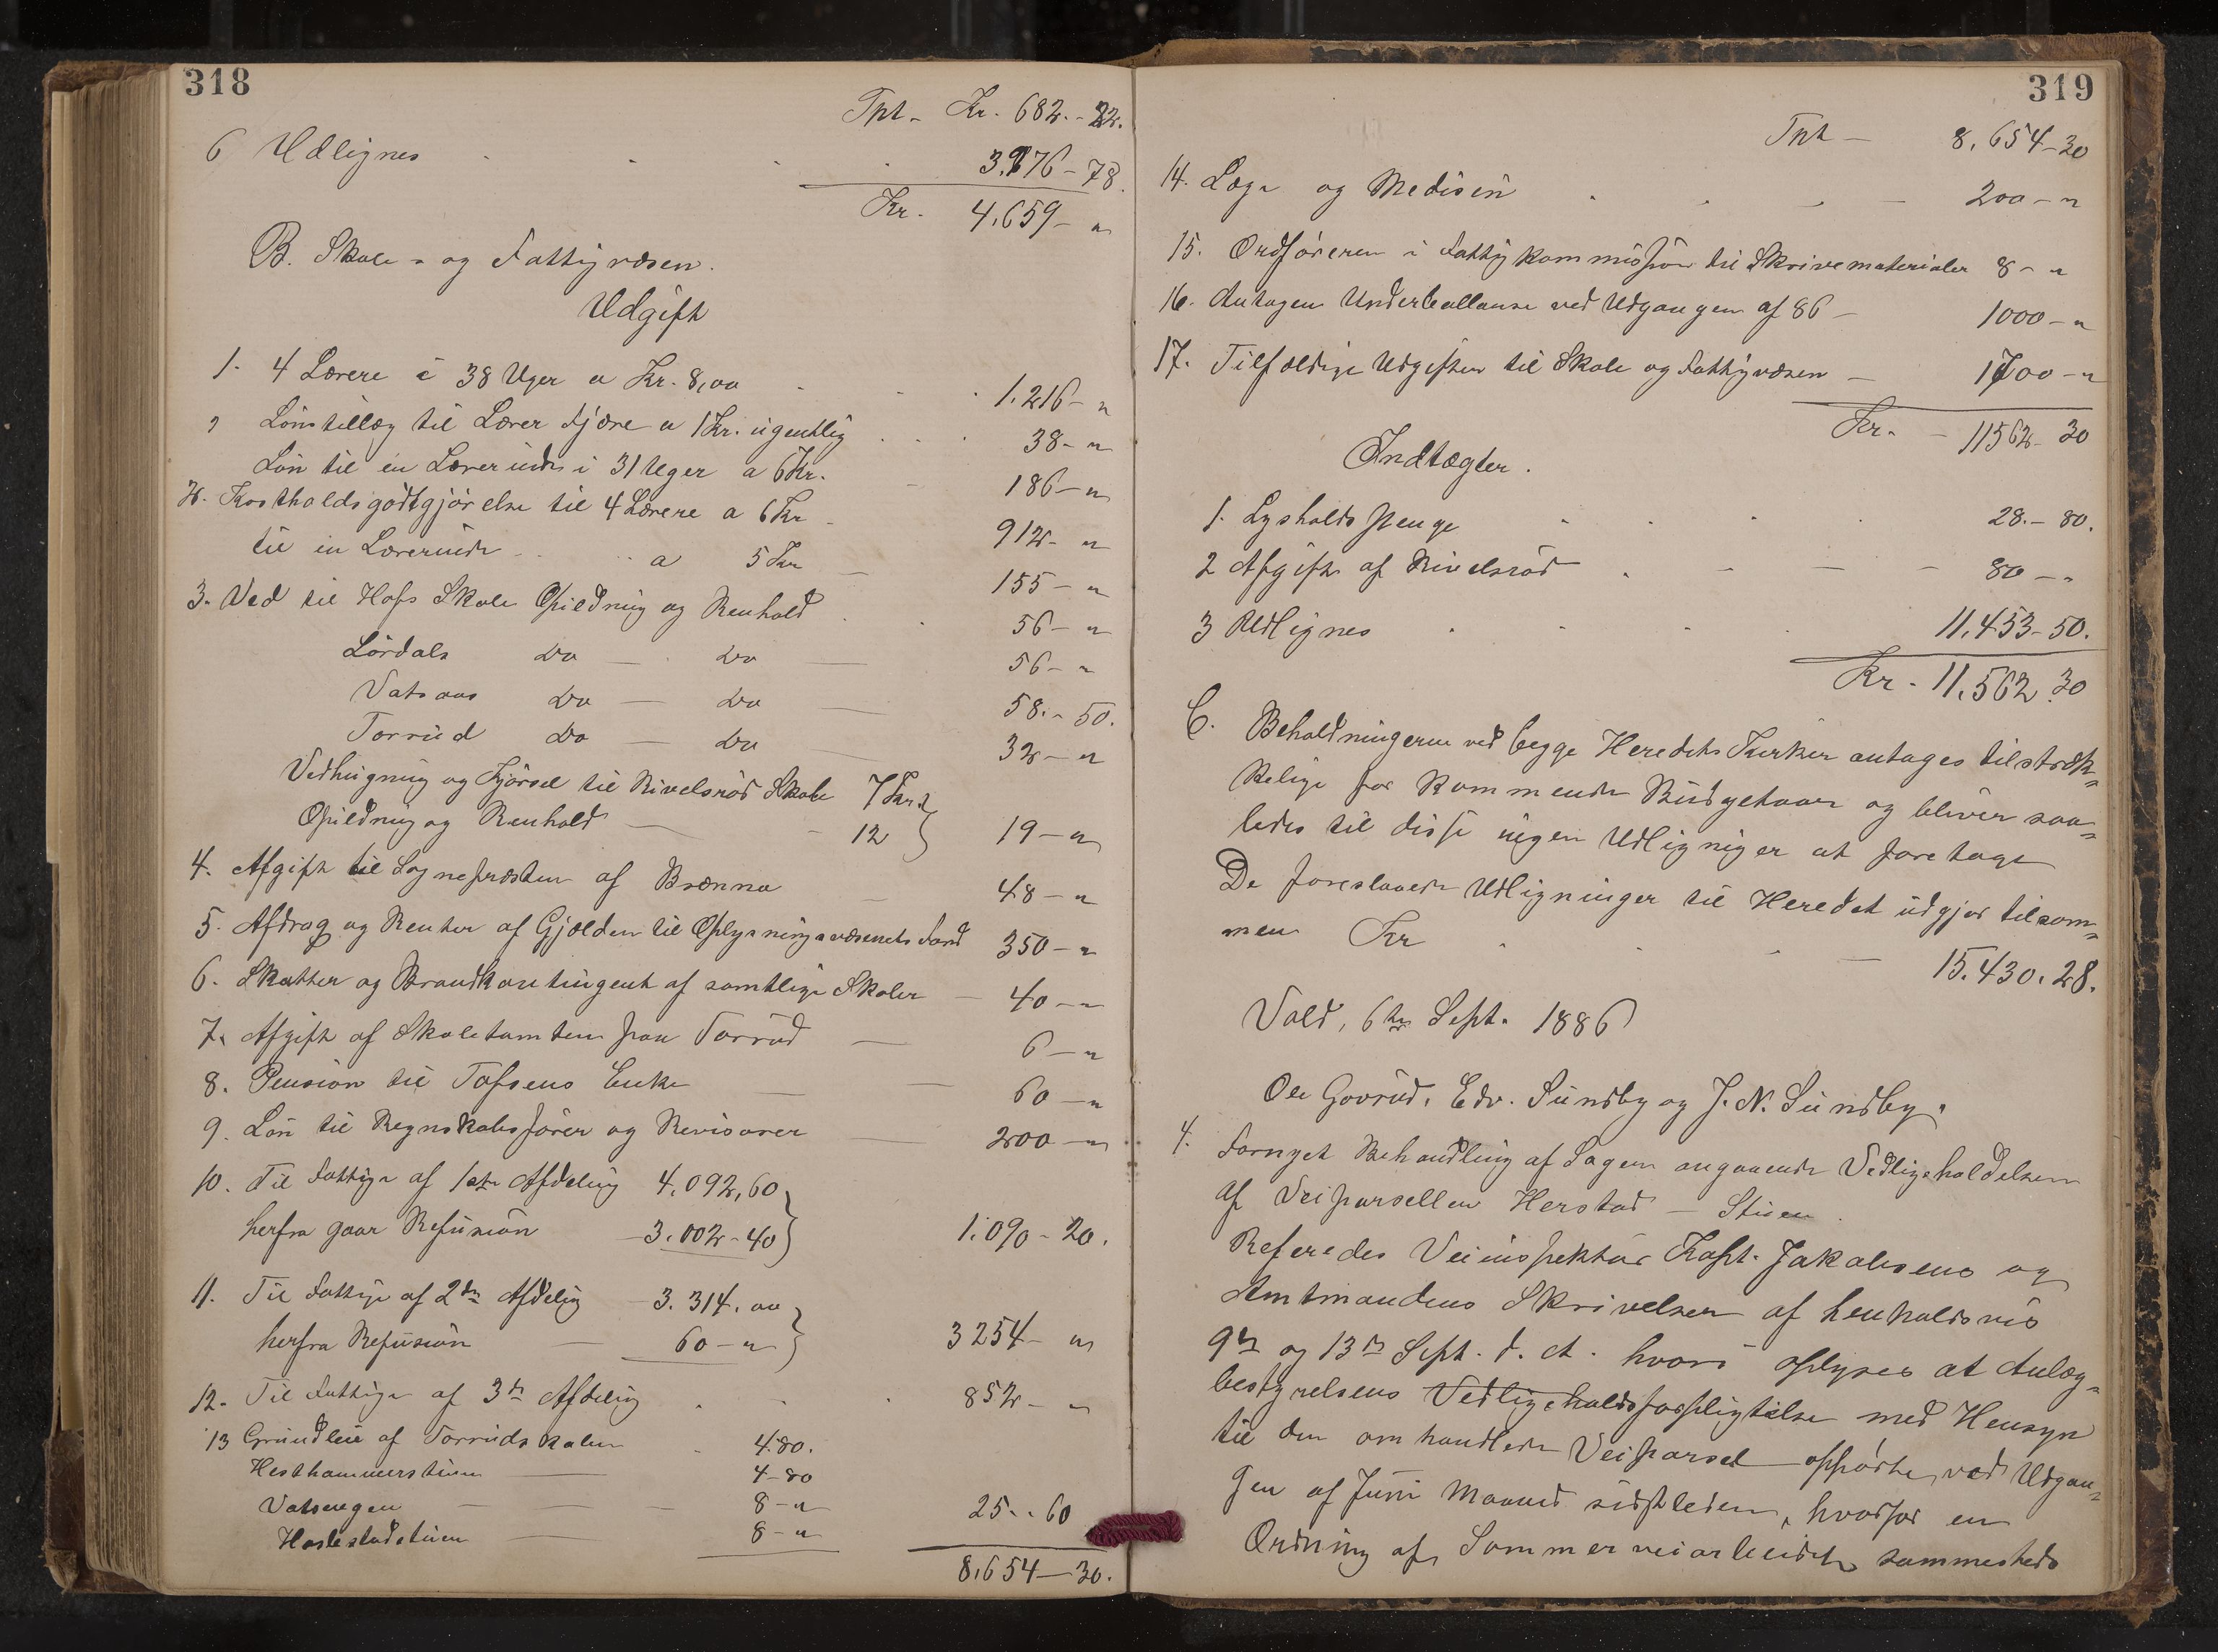 318
Tpt. Kr. 682.-22.
6 Udlignes . . . . 3.976-78.
Kr. 4.659- "
B. Skole- og Fattigvæsen.
Udgift
1. 4 Lærere i 38 Uger a Kr. 8,00 . . . 1.216- "
" Lönstillæg til Lærer Fjære a 1 Kr. ugentlig . . . 38- "
Lön til en Lærerinde i 31 Uger a 6 Kr. - 186- "
2. Kostholdsgodtgjörelse til 4 Lærere a 6 Kr - 912- "
til en Lærerinde . . a 5 Kr - 155- "
3. Ved til Hofs Skole Opildning og Renhold . . 56- "
Lördals Do - Do - 56- "
Vatsaas Do - Do - 58.-50.
Torrud Do - Do - 32- "
Vedhugning og Kjörsel til Rivelsröd Skole 7 Kr }
Opildning og Renhold - 12 } 19- "
4. Afgift til Sognepræsten af Brænna - 48- "
5. Afdrag og Renter af Gjælden til Oplysningsvæsenets Fond 350- "
6. Skatter og Brandkontingent af samtlige Skoler - 40- "
7. Afgift af Skoletomten paa Torrud - 6- "
8. Pension til Tofsens Enke - 60- "
9. Lön til Regnskabsförer og Revisorer - 200- "
10. Til Fattige af 1ste Afdeling 4.092,60 }
herfra gaar Refusion 3.002-40 } 1.090-20.
11. Til Fattige af 2den Afdelig 3.314.00 }
herfra Refusion - 60- " } 3254- "
12. Til Fattige af 3de Afdelig . - . 852- "
13 Grundleie af Torrudskolen . 4.80.
Hesthammerstuen - 4-80
Vatsengen - - - 8- "
Haslestadstuen - 8- " 25.-60
8.654-30.
319
Tpt - 8.654-30
14. Læge og Medisin . . - - 200- "
15. Ordföreren i Fattigkommission til Skrivematerialer 8- "
16. Antagen Underballanse ved Udgangen af 86 - 1000- "
17. Tilfældige Udgifter til Skole og Fattigvæsen - 1700- "
Kr. - 11562-30
Indtægter.
1. Lysholds penge . . . . 28.-80.
2 Afgift af Rivelsröd . - - - 80- "
3 Udlignes . . . . 11.453-50.
Kr. 11.562.30
C. Beholdningerne ved begge Heredets Kirker antages tilstræk-
kelige for kommende Budgetaar og bliver saa-
ledes til disse ingen Udligniger at foretage
De foreslaaede Udligninger til Heredet udgjör tilsam-
men Kr . . - 15.430.28.
Vold, 6te Sept. 1886
Ole Govrud. Edv. Sundby og J. N. Sundby.
4. Fornyet Behandling af Sagen angaaende Vedligeholdelsen
af Veiparsellen Herstad - Stuen.
Referedes Veiinspektör Kapt. Jakobsens og
Amtmandens Skrivelser af henholdsvis
9de og 13de Sept. d. A. hvori oplyses at Anlæg-
bestyrelsens Vedligeholdsforpligtelse med Hensyn
til den omhandlede Veiparsel ophörte ved Udgan-
gen af Juni Maaned sidstleden, hvorfor en
Ordning af Sommerveiarbeidet sammesteds